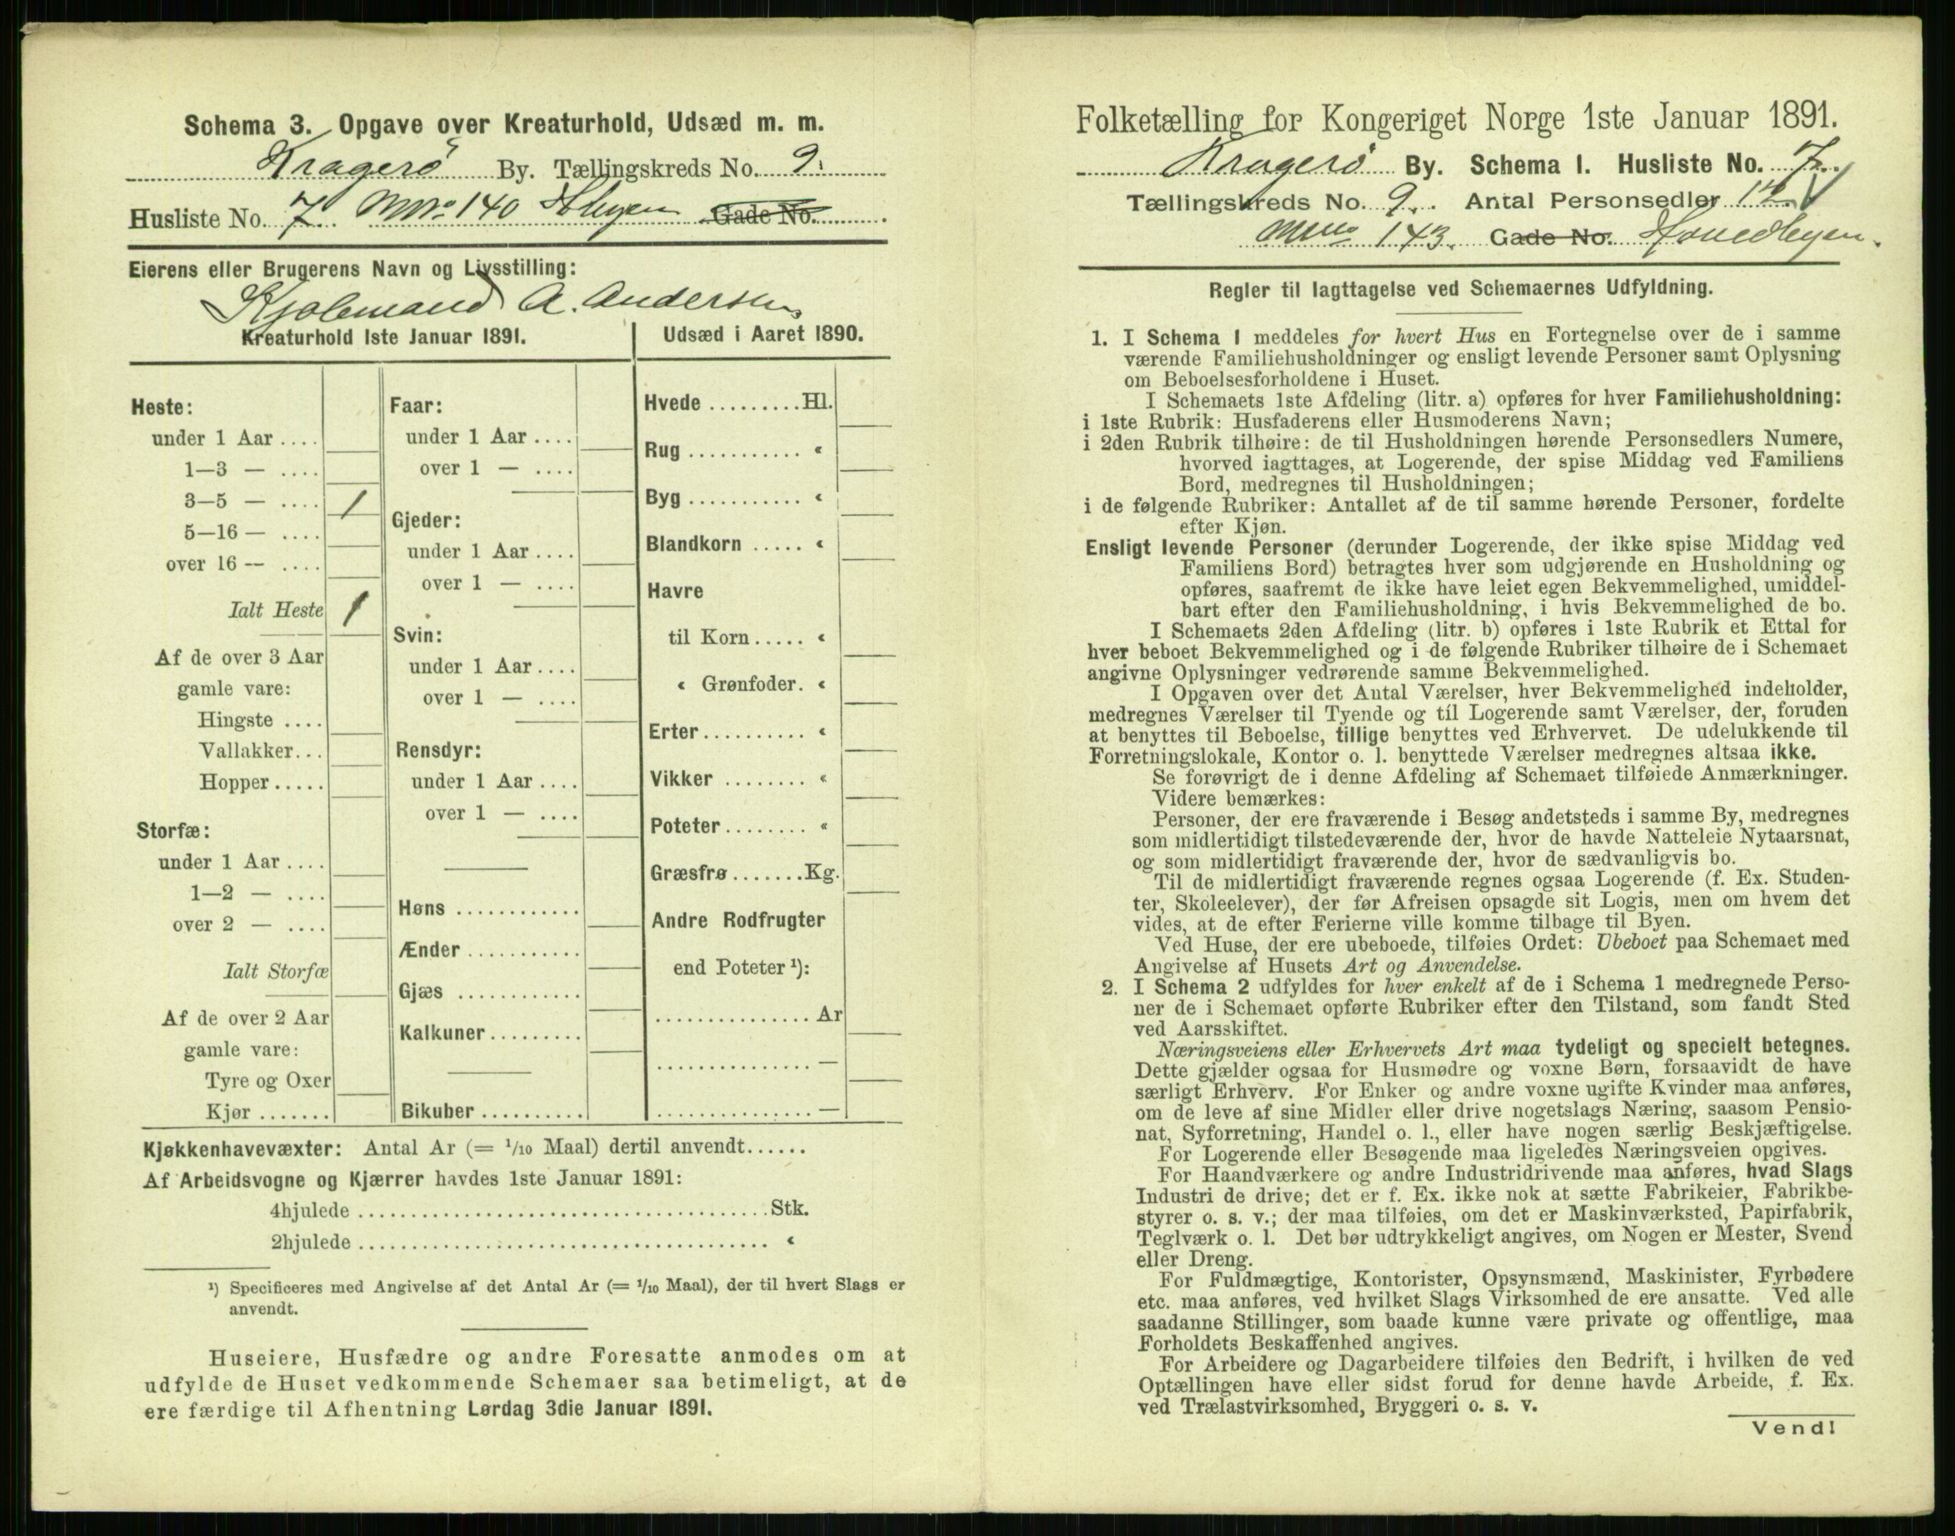 Schema 3. Opgave over Kreaturhold, Udsæd m. m.
Kragerö By. Tællingskreds No. 9.
Husliste No. 7. Mno 140 Gade No.
Eierens eller Brugerens Navn og Livsstilling:
A. Andersen
Kreaturhold 1ste Januar 1891.
Heste:
under 1 Aar ....
1—3 — ....
3—5 — .... 1
5—16 — ....
over 16 — ....
Ialt Heste 1
Af de over 3 Aar
gamle vare:
Hingste ....
Vallakker...
Hopper.....
Storfæ:
under 1 Aar ....
1—2 — ....
over 2 — ....
Ialt Storfæ
Af de over 2 Aar
gamle vare:
Tyre og Oxer
Kjør .......
Faar:
under 1 Aar ....
over 1 — ....
Gjeder:
under 1 Aar ....
over 1 — ....
Svin:
under 1 Aar ....
over 1 — ....
Rensdyr:
under 1 Aar ....
over 1 — ....
Høns ............
Ænder ...........
Gjæs ............
Kalkuner.........
Bikuber ..........
Udsæd i Aaret 1890.
Hvede .........Hl.
Rug ........... «
Byg ........... «
Blandkorn ..... «
Havre
til Korn ..... «
« Grønfoder. «
Erter.......... «
Vikker ........ «
Poteter........ «
Græsfrø.......Kg.
Andre Rodfrugter
end Poteter ¹):
............... Ar
............... —
............... —
Kjøkkenhavevæxter: Antal Ar (= 1/10 Maal) dertil anvendt......
Af Arbeidsvogne og Kjærrer havdes 1ste Januar 1891:
4hjulede .......................................Stk.
2hjulede ....................................... «
¹) Specificeres med Angivelse af det Antal Ar (= 1/10 Maal), der til hvert Slags er
anvendt.
Huseiere, Husfædre og andre Foresatte anmodes om at
udfylde de Huset vedkommende Schemaer saa betimeligt, at de
ere færdige til Afhentning Lørdag 3die Januar 1891.
Folketælling for Kongeriget Norge 1ste Januar 1891.
Kragerö By. Schema 1. Husliste No. 7.
Tællingskreds No. 9. Antal Personsedler
143. Gade No.
Regler til Iagttagelse ved Schemaernes Udfyldning.
1. I Schema 1 meddeles for hvert Hus en Fortegnelse over de i samme
værende Familiehusholdninger og ensligt levende Personer samt Oplysning
om Beboelsesforholdene i Huset.
I Schemaets 1ste Afdeling (litr. a) opføres for hver Familiehusholdning:
i 1ste Rubrik: Husfaderens eller Husmoderens Navn;
i 2den Rubrik tilhøire: de til Husholdningen hørende Personsedlers Numere,
hvorved iagttages, at Logerende, der spise Middag ved Familiens
Bord, medregnes til Husholdningen;
i de følgende Rubriker: Antallet af de til samme hørende Personer, fordelte
efter Kjøn.
Ensligt levende Personer (derunder Logerende, der ikke spise Middag ved
Familiens Bord) betragtes hver som udgjørende en Husholdning og
opføres, saafremt de ikke have leiet egen Bekvemmelighed, umiddel-
bart efter den Familiehusholdning, i hvis Bekvemmelighed de bo.
I Schemaets 2den Afdeling (litr. b) opføres i 1ste Rubrik et Ettal for
hver beboet Bekvemmelighed og i de følgende Rubriker tilhøire de i Schemaet
angivne Oplysninger vedrørende samme Bekvemmelighed.
I Opgaven over det Antal Værelser, hver Bekvemmelighed indeholder,
medregnes Værelser til Tyende og til Logerende samt Værelser, der, foruden
at benyttes til Beboelse, tillige benyttes ved Erhvervet. De udelukkende til
Forretningslokale, Kontor o. l. benyttede Værelser medregnes altsaa ikke.
Se forøvrigt de i denne Afdeling af Schemaet tilføiede Anmærkninger.
Videre bemærkes:
Personer, der ere fraværende i Besøg andetsteds i samme By, medregnes
som midlertidigt tilstedeværende der, hvor de havde Natteleie Nytaarsnat,
og som midlertidigt fraværende der, hvor de sædvanligvis bo.
Til de midlertidigt fraværende regnes ogsaa Logerende (f. Ex. Studen-
ter, Skoleelever), der før Afreisen opsagde sit Logis, men om hvem det
vides, at de efter Ferierne ville komme tilbage til Byen.
Ved Huse, der ere ubeboede, tilføies Ordet: Ubeboet paa Schemaet med
Angivelse af Husets Art og Anvendelse.
2. I Schema 2 udfyldes for hver enkelt af de i Schema 1 medregnede Perso-
ner de i Schemaet opførte Rubriker efter den Tilstand, som fandt Sted
ved Aarsskiftet.
Næringsveiens eller Erhvervets Art maa tydeligt og specielt betegnes.
Dette gjælder ogsaa for Husmødre og voxne Børn, forsaavidt de have
særligt Erhverv. For Enker og andre voxne ugifte Kvinder maa anføres,
om de leve af sine Midler eller drive nogetslags Næring, saasom Pensio-
nat, Syforretning, Handel o. l., eller have nogen særlig Beskjæftigelse.
For Logerende eller Besøgende maa ligeledes Næringsveien opgives.
For Haandværkere og andre Industridrivende maa anføres, hvad Slags
Industri de drive; det er f. Ex. ikke nok at sætte Fabrikeier, Fabrikbe-
styrer o. s. v.; der maa tilføies, om det er Maskinværksted, Papirfabrik,
Teglværk o. l. Det bør udtrykkeligt angives, om Nogen er Mester, Svend
eller Dreng.
For Fuldmægtige, Kontorister, Opsynsmænd, Maskinister, Fyrbødere
etc. maa anføres, ved hvilket Slags Virksomhed de ere ansatte. Ved alle
saadanne Stillinger, som baade kunne være private og offentlige, maa
Forholdets Beskaffenhed angives.
For Arbeidere og Dagarbeidere tilføies den Bedrift, i hvilken de ved
Optællingen have eller sidst forud for denne havde Arbeide, f. Ex.
ved Trælastvirksomhed, Bryggeri o. s. v.
Vend!